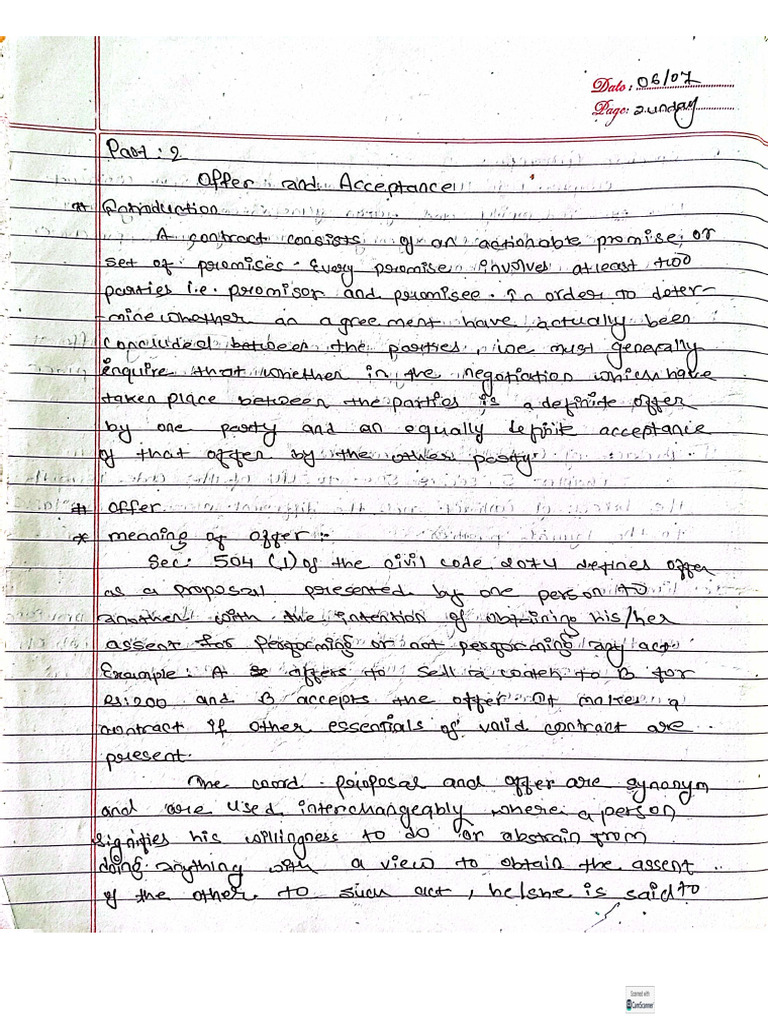 Date: 06/07
Page: Sunday
Part: 2
Offer and Acceptance
* Introduction
A contract consists of an actionable promise, or
set of promises. Every promise involves atleast two
parties i.e. promisor and promisee. In order to deter-
-mine whether an agreement have actually been
concluded between the parties, we must generally
enquire that whether in the negotiation which have
taken place between the parties is a definite offer
by one party and an equally definite acceptance
of that offer by the other party.
# Offer
* meaning of offer :-
Sec: 504 (1) of the civil code 2074 defines offer
as a proposal presented by one person to
another with the intention of obtaining his/her
assent for performing or not performing any act.
Example: A offers to sell a watch to B for
Rs.1200 and B accepts the offer. It makes a
contract if other essentials of valid contract are
present.
The word proposal and offer are synonym
and are used interchangeably where a person
signifies his willingness to do or abstrain from
doing anything with a view to obtain the assent
of the other to such act, he/she is said to
Scanned with
CamScanner